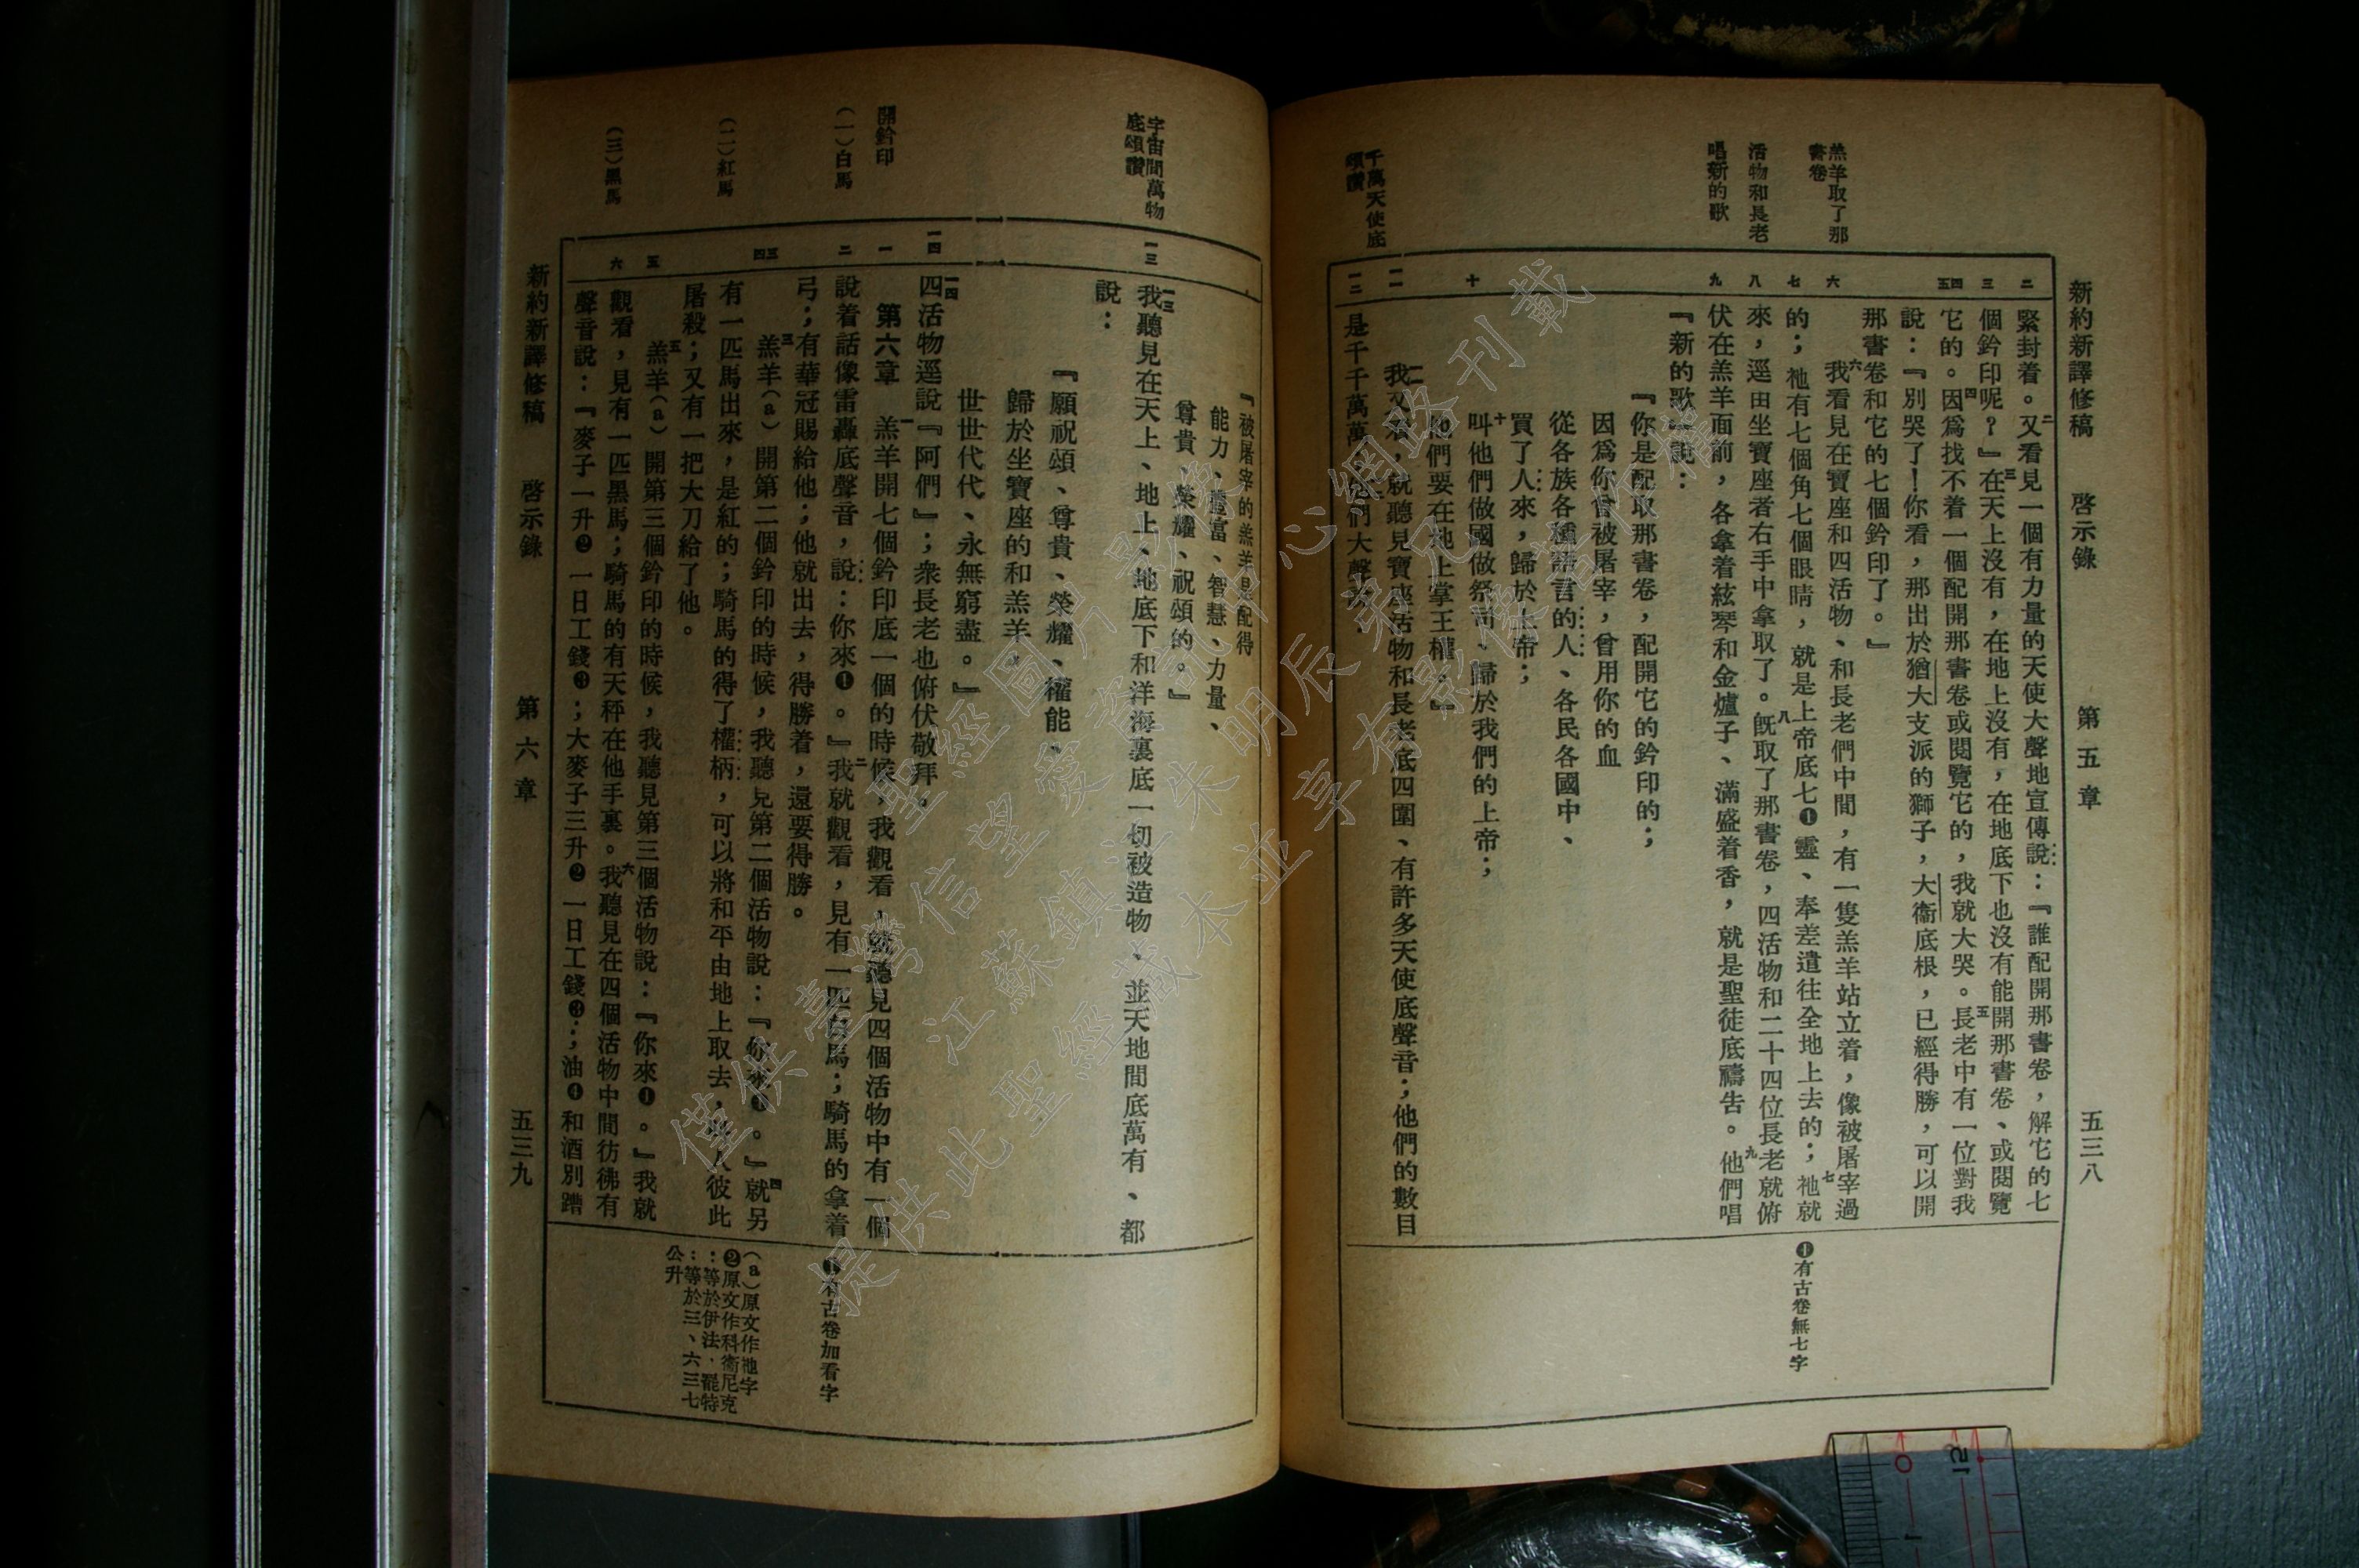 新約新譯修稿　啓示錄　第五章　五三八
羔羊取了那
書卷
活物和長老
唱新的歌
千萬天使底
頌讚
二
三
四
五
六
七
八
九
十
一一
一二
緊封着。二又看見一個有力量的天使大聲地宣傳說：『誰配開那書卷，解它的七
個鈐印呢？』三在天上沒有，在地上沒有，在地底下也沒有能開那書卷、或閱覽
它的。四因爲找不着一個配開那書卷或閱覽它的，我就大哭。五長老中有一位對我
說：『別哭了！你看，那出於猶大支派的獅子，大衞底根，已經得勝，可以開
那書卷和它的七個鈐印了。』
六我看見在寶座和四活物、和長老們中間，有一隻羔羊站立着，像被屠宰過
的；祂有七個角七個眼睛，就是上帝底七❶靈、奉差遣往全地上去的；七祂就
來，逕由坐寶座者右手中拿取了。八旣取了那書卷，四活物和二十四位長老就俯
伏在羔羊面前，各拿着絃琴和金爐子、滿盛着香，就是聖徒底禱告。九他們唱
『新的歌』說：
『你是配取那書卷，配開它的鈐印的；
因爲你曾被屠宰，曾用你的血
從各族各種語言的人、各民各國中、
買了人來，歸於上帝；
十叫他們做國做祭司、歸於我們的上帝；
他們要在地上掌王權。』
一一我又看，就聽見寶座活物和長老底四圍、有許多天使底聲音；他們的數目
是千千萬萬。一二他們大聲說：
❶有古卷無七字
宇宙間萬物
底頌讚
開鈐印
（一）白馬
（二）紅馬
（三）黑馬
一三
一四
一
二
三
四
五
六
『被屠宰的羔羊是配得
能力、豐富、智慧、力量、
尊貴、榮耀、祝頌的。』
一三我聽見在天上、地上、地底下和洋海裏底一切被造物、並天地間底萬有、都
說：
『願祝頌、尊貴、榮耀、權能、
歸於坐寶座的和羔羊，
世世代代、永無窮盡。』
一四四活物逕說『阿們』；衆長老也俯伏敬拜。
第六章　一羔羊開七個鈐印底一個的時候，我觀看，就聽見四個活物中有一個
說着話像雷轟底聲音，說：你來❶。』二我就觀看，見有一匹白馬；騎馬的拿着
弓；有華冠賜給他；他就出去，得勝着，還要得勝。
三羔羊（a）開第二個鈐印的時候，我聽見第二個活物說：『你來❶。』四就另
有一匹馬出來，是紅的；騎馬的得了權柄，可以將和平由地上取去，使人彼此
屠殺；又有一把大刀給了他。
五羔羊（a）開第三個鈐印的時候，我聽見第三個活物說：『你來❶。』我就
觀看，見有一匹黑馬；騎馬的有天秤在他手裏。六我聽見在四個活物中間彷彿有
聲音說：『麥子一升❷一日工錢❸；大麥子三升❷一日工錢❸；油❹和酒別蹧
❶有古卷加看字
（a）原文作祂字
❷原文作科衞尼克
：等於伊法·罷特
：等於三、六三七
公升
新約新譯修稿　啓示錄　第六章　五三九
僅供臺灣信望愛資訊中心網路刊載
江蘇鎮江朱明辰弟兄
提供此聖經藏本並享有影像著作權